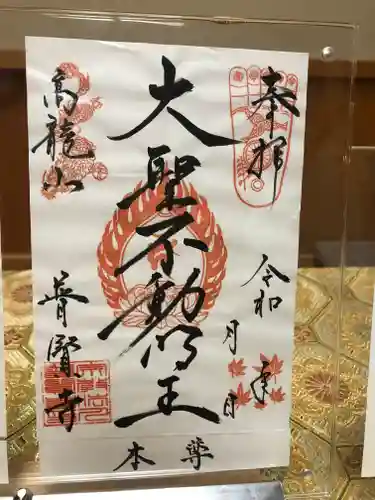 奉拝
令和 年
月 日
大聖不動明王
本尊
高龍山
普賢寺